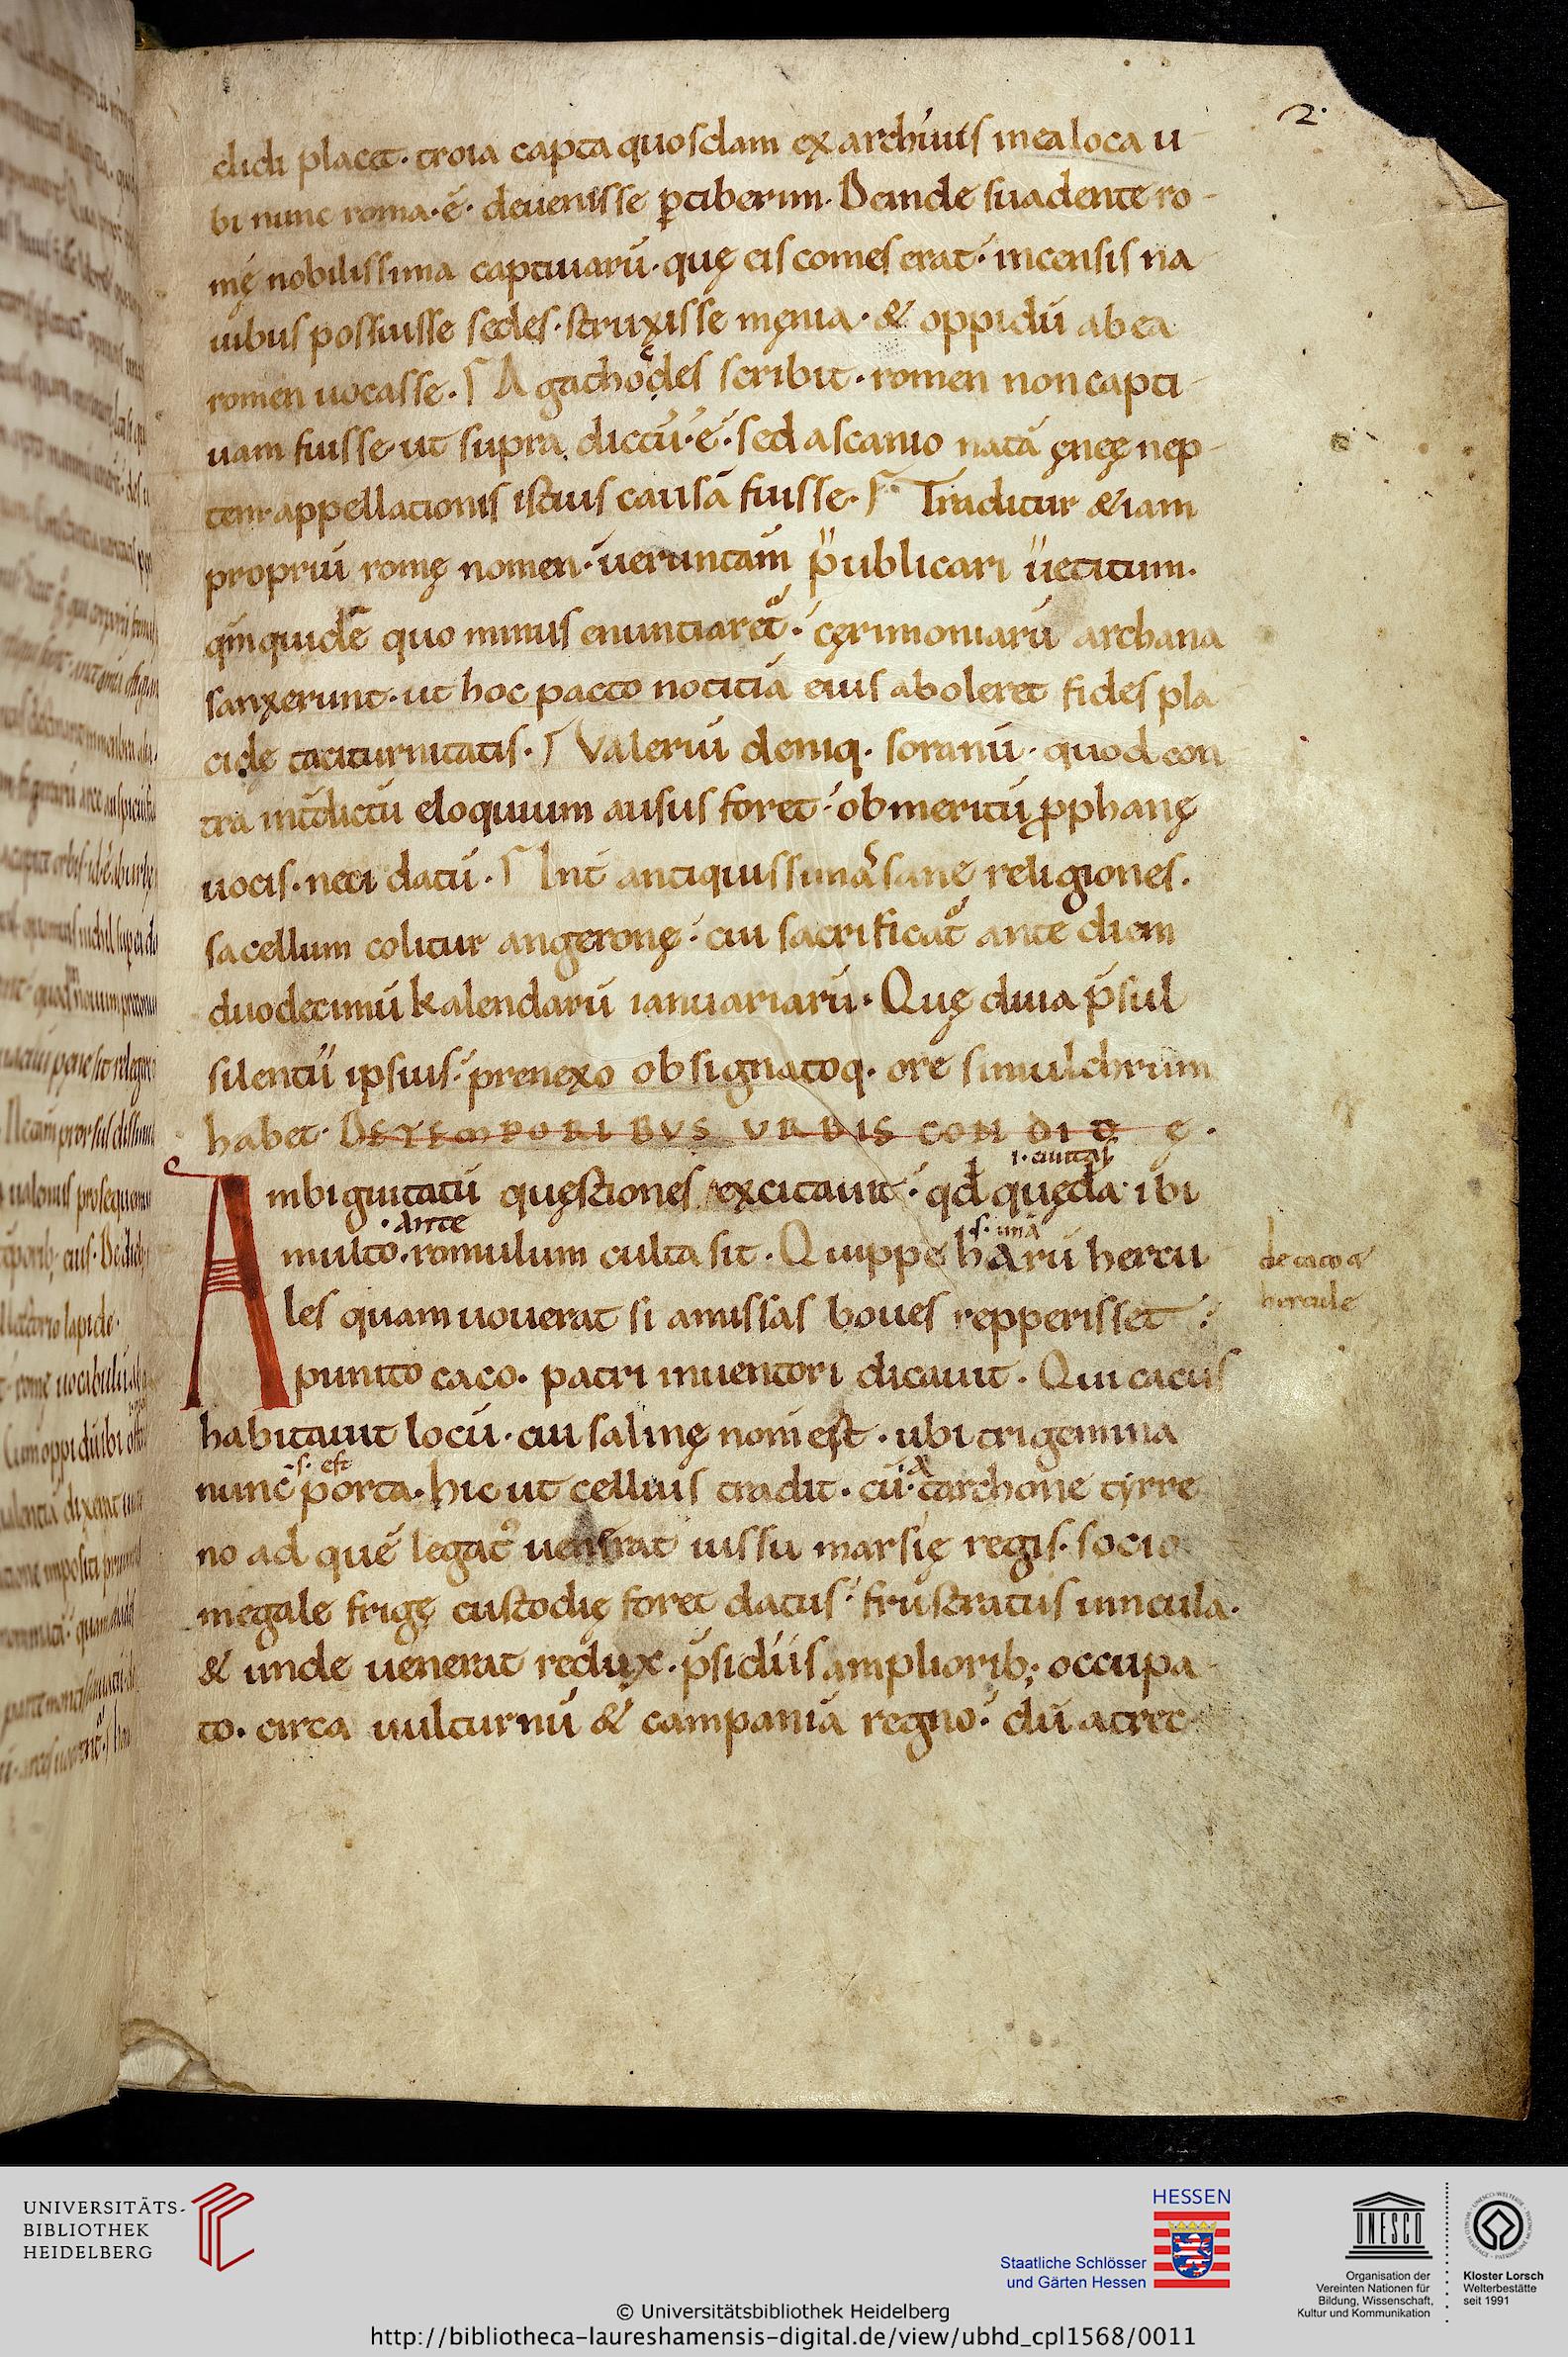 2.
clidi placet· troia capta quosdam ex archiuis in ea loca u-
bi nunc roma·ē· deuenisse ꝑ tiberim· Deinde suadente ro-
mę nobilissima captiuarū· quę eis comes erat· incensis na
uibus possuisse sedes· struxisse męnia· & oppidū ab ea
romen uocasse· Agathocles scribit· romen non capti-
uam fuisse ut supra dictū·ē· sed ascanio natā ęneę nep-
tem appellationis istius causā fuisse· Traditur &iam
propriū romę nomen· ueruntam publicari uetitum·
qm̄quidē quo minus enuntiaret᷒· cęrimoniarū archana
sanxerunt· ut hoc pacto notitiā eius aboleret fides pla
cide taciturnitatis· Valeriū deniq· soranū· quod con
tra int̄dictū eloquium ausus foret· ob meritū ꝓphanę
uocis· neci datū· Int̄ antiquissimas sanę religiones·
sacellum colitur angeronę· cui sacrificat᷒ ante diem
duodecimū kalendarū ianuariarū· Quę diua p̄sul
silentii ipsius· prenexo obsignatoq· ore simulchrum
habet· DE TEMPORIBVS VRBIS CONDITę·
i· ciuitas
Ambiguitatū quęstiones excitauit· qd quędā ibi
·ante s· unā
multo· romulum culta sit· Quippe harū hercu
les quam uouerat si amissas boues repperisset·
punito caco· patri inuentori dicauit· Qui cacus
de caco &
hercule
habitauit locū· cui salinę nom̄ est· ubi trigemina
s· est a
nunc porta· hic ut cellius tradit· cū· tarchone tyrre
no ad quē legat᷒ uenerat iussu marsię regis· socio
megale frigę custodię foret datus· frustratus uincula·
& unde uenerat redux· p̄sidiis amplioribꝫ occupa-
to· circa uulturnū & campaniā regno· dū atrec-
UNIVERSITÄTS-
BIBLIOTHEK
HEIDELBERG
HESSEN
Staatliche Schlösser
und Gärten Hessen
UNESCO
Organisation der
Vereinten Nationen für
Bildung, Wissenschaft,
Kultur und Kommunikation
Kloster Lorsch
Welterbestätte
seit 1991
© Universitätsbibliothek Heidelberg
http://bibliotheca-laureshamensis-digital.de/view/ubhd_cpl1568/0011